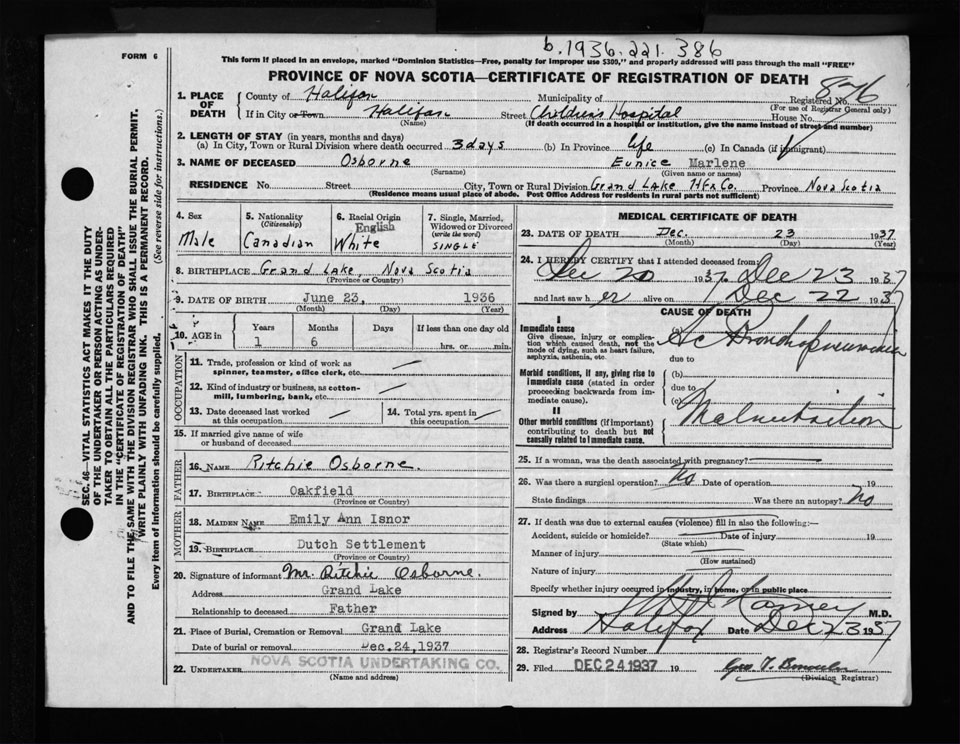 b.1936.221.386
FORM 6
This form if placed in an envelope, marked "Dominion Statistics—Free, penalty for improper use $300," and properly addressed will pass through the mail "FREE"
PROVINCE OF NOVA SCOTIA—CERTIFICATE OF REGISTRATION OF DEATH
876
1. PLACE OF DEATH
County of Halifax Municipality of Registered No.
(For use of Registrar General only)
If in City or Town Halifax Street Children's Hospital House No.
(Name) (If death occurred in a hospital or institution, give the name instead of street and number)
2. LENGTH OF STAY (in years, months and days)
(a) In City, Town or Rural Division where death occurred 3 days (b) In Province life (c) In Canada (if immigrant)
3. NAME OF DECEASED Osborne Eunice Marlene
(Surname) (Given name or names)
RESIDENCE No. Street City, Town or Rural Division Grand Lake Hfx Co. Province Nova Scotia
(Residence means usual place of abode. Post Office Address for residents in rural parts not sufficient)
4. Sex
Male
5. Nationality
(Citizenship)
Canadian
6. Racial Origin
English
White
7. Single, Married, Widowed or Divorced
(write the word)
SINGLE
8. BIRTHPLACE Grand Lake, Nova Scotia
(Province or Country)
9. DATE OF BIRTH June 23, 1936
(Month) (Day) (Year)
10. AGE in Years Months Days If less than one day old
1 6 hrs. or min.
OCCUPATION
11. Trade, profession or kind of work as
spinner, teamster, office clerk, etc.
12. Kind of industry or business, as cotton-
mill, lumbering, bank, etc.
13. Date deceased last worked
at this occupation.
14. Total yrs. spent in
this occupation
15. If married give name of wife
or husband of deceased
FATHER
16. NAME Ritchie Osborne.
17. BIRTHPLACE Oakfield
(Province or Country)
MOTHER
18. MAIDEN NAME Emily Ann Isnor
19. BIRTHPLACE Dutch Settlement
(Province or Country)
20. Signature of informant Mr. Ritchie Osborne.
Address Grand Lake
Relationship to deceased Father
21. Place of Burial, Cremation or Removal Grand Lake
Date of burial or removal Dec.24,1937
22. UNDERTAKER NOVA SCOTIA UNDERTAKING CO.
(Name and address)
MEDICAL CERTIFICATE OF DEATH
23. DATE OF DEATH Dec. 23 1937
(Month) (Day) (Year)
24. I HEREBY CERTIFY that I attended deceased from
Dec 20 1937 Dec 23 1937
and last saw her alive on Dec 22 1937
CAUSE OF DEATH
I
Immediate cause
Give disease, injury or complica-
tion which caused death, not the
mode of dying, such as heart failure,
asphyxia, asthenia, etc.
(a) Ac Bronchopneumonia
due to
Morbid conditions, if any, giving rise to
immediate cause (stated in order
proceeding backwards from im-
mediate cause).
(b)
due to
(c)
II
Other morbid conditions (if important)
contributing to death but not
causally related to immediate cause.
Malnutrition
25. If a woman, was the death associated with pregnancy?
26. Was there a surgical operation? No Date of operation 19
State findings Was there an autopsy? No
27. If death was due to external causes (violence) fill in also the following:—
Accident, suicide or homicide? Date of injury 19
(State which)
Manner of injury
(How sustained)
Nature of injury
Specify whether injury occurred in industry, in home, or in public place
Signed by M.D.
Address Halifax Date Dec 23 1937
28. Registrar's Record Number
29. Filed DEC 24 1937 19
(Division Registrar)
SEC. 46—VITAL STATISTICS ACT MAKES IT THE DUTY
OF THE UNDERTAKER OR PERSON ACTING AS UNDER-
TAKER TO OBTAIN ALL THE PARTICULARS REQUIRED
IN THE "CERTIFICATE OF REGISTRATION OF DEATH"
AND TO FILE THE SAME WITH THE DIVISION REGISTRAR WHO SHALL ISSUE THE BURIAL PERMIT.
WRITE PLAINLY WITH UNFADING INK. THIS IS A PERMANENT RECORD.
Every item of information should be carefully supplied. (See reverse side for instructions.)